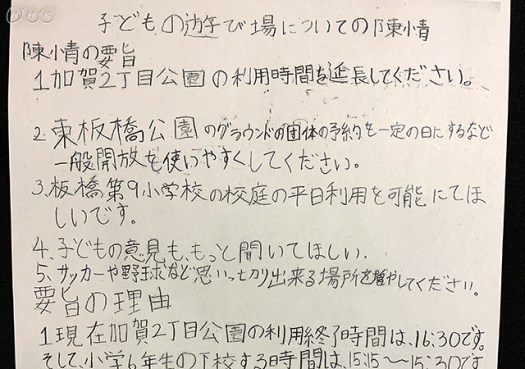 NHK
子どもの遊び場についての陳情
陳情の要旨
1加賀2丁目公園の利用時間を延長してください。
2.東板橋公園のグラウンドの団体の予約を一定の日にするなど
一般開放を使いやすくしてください。
3.板橋第9小学校の校庭の平日利用を可能にてほ
しいです。
4.子どもの意見も、もっと聞いてほしい.
5.サッカーや野球など思いっきり出来る場所を増やしてください。
要旨の理由
1現在加賀2丁目公園の利用終了時間は、16:30です。
そして、小学6年生の下校する時間は、15:15〜〜15:30です